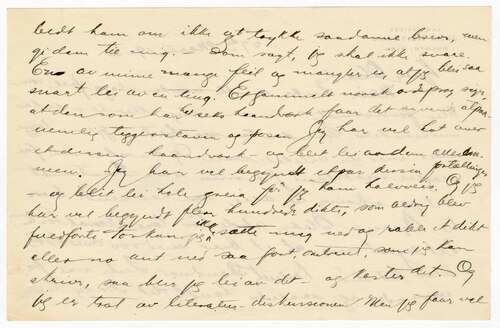 bedt ham om ikke at trykke saadanne breve, men
gi dem til mig. Som sagt, jeg skal ikke svare.
En av mine mange feil og mangler er, at jeg blir saa
snart lei av en ting. Et gammelt norsk ordsprog siger,
at den som har seks haandverk faar det syvende
nemlig tiggerstaven og posen. Jeg har vel hat over
et dusin haandverk og blet lei av dem alle
men. Jeg har vel begyndt et par dusin fortællinger
– og blet lei hele greia før jeg kom halveis. Og jeg
har vel begyndt flere hundrede dikte, som aldrig blev
for kan jeg ikke sætte mig ned og rable et dikt
eller no ant ned saa fort, som jeg kan
skrive, saa blir jeg lei av det – og kaster det. Og
jeg er træt av literatur-diskussionen. Men jeg faar vel